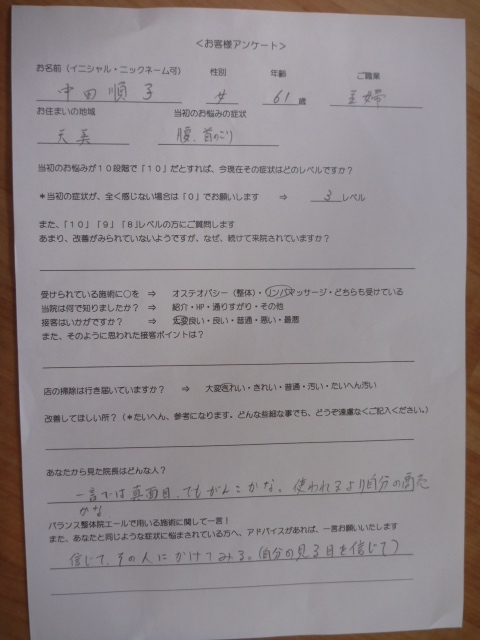 ＜お客様アンケート＞
お名前（イニシャル・ニックネーム可） 性別 年齢 ご職業
中田 順子 女 61 歳 主婦
お住まいの地域 当初のお悩みの症状
天美 腰、首のこり
当初のお悩みが10段階で「10」だとすれば、今現在その症状はどのレベルですか？
＊当初の症状が、全く感じない場合は「0」でお願いします ⇒ 3 レベル
また、「10」「9」「8」レベルの方にご質問します
あまり、改善がみられていないようですが、なぜ、続けて来院されていますか？
受けられている施術に○を ⇒ オステオパシー（整体）・リンパマッサージ・どちらも受けている
当院は何で知りましたか？ ⇒ 紹介・HP・通りすがり・その他
接客はいかがですか？ ⇒ 大変良い・良い・普通・悪い・最悪
また、そのように思われた接客ポイントは？
店の掃除は行き届いていますか？ ⇒ 大変きれい・きれい・普通・汚い・たいへん汚い
改善してほしい所？（＊たいへん、参考になります。どんな些細な事でも、どうぞ遠慮なくご記入ください。）
あなたから見た院長はどんな人？
一言では真面目、でもがんこかな、使われるより自分の商売
かな
バランス整体院エールで用いる施術に関して一言！
また、あなたと同じような症状に悩まされている方へ、アドバイスがあれば、一言お願いいたします
信じて、その人にかけてみる。（自分の見る目を信じて）